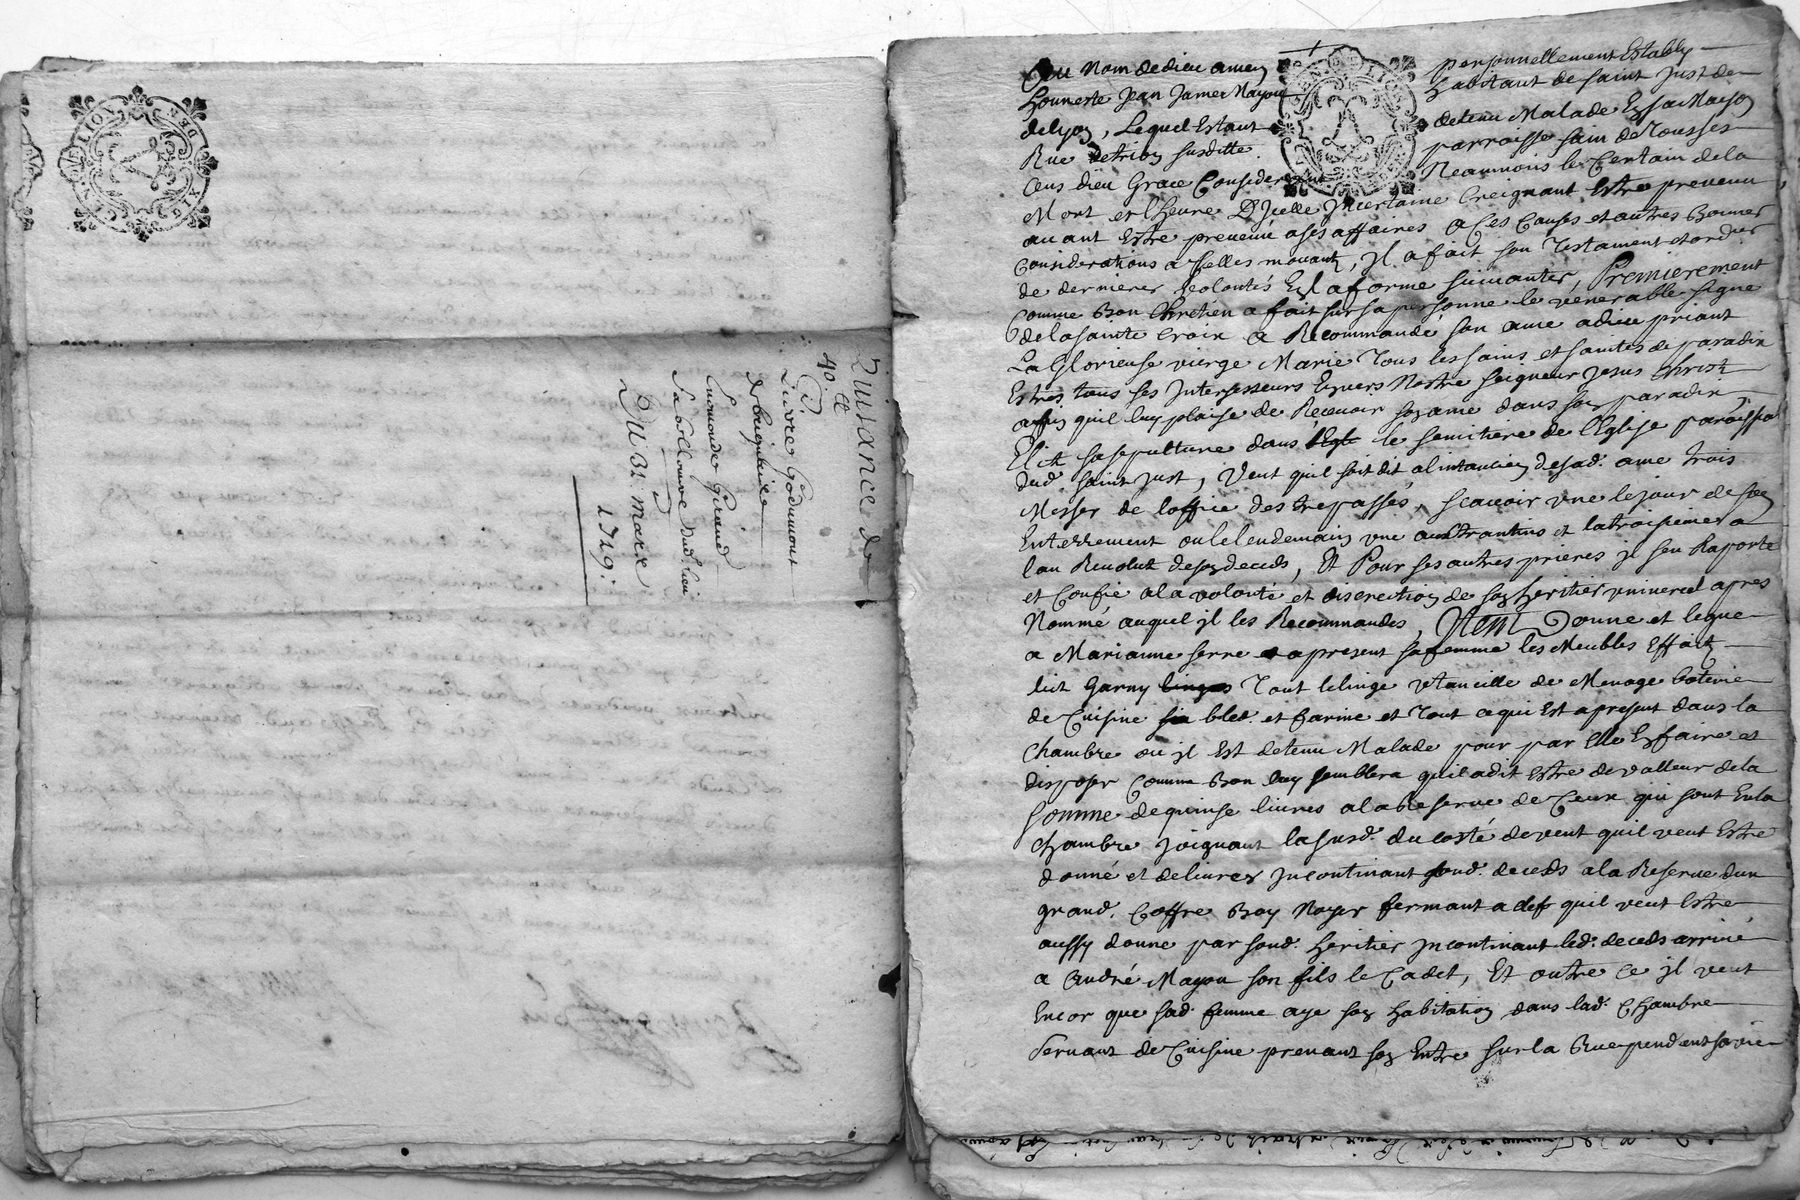 Quittance de
40 ᵗᵗ
Pierre Godumont
Esmonde Giraud
Du 31 Mars
1719.
Au Nom de dieu amen personnellement Estably
honneste Jean Jamet Mayou habitant de saint Just de
de lyon, Lequel Estant detenu Malade En sa Mayson
Rue de trion susditte parroisse sain de Tousses
Cens dieu Grace Considerant Neanmoins le Certain de la
Mort et lheure D'jcelle jncertaine Creignant Estre prevenu
avant Estre prevenu a ses affaires a Ces Causes et autres Bonnes
Considerations a Jcelles mouant, jl a fait son Testament et ordre
de dernieres volontés En la forme suiuantes, Premierement
Comme Bon Chretien a fait sur sa personne le venerable signe
de la sainte Croix a Recommandé son ame a dieu priant
La Glorieuse vierge Marie Tous les sains et saintes de paradix
Estres tous ses Intersesseurs Enuers Nostre seigneur jesus Christ
affin quil luy plaise de Receuoir son ame dans son paradix
Elit sa sepulture dans le semitiere de l'Eglise paroissial
dud. saint Just, Veut quil soit dit a lintancion de sad. ame trois
Messes de loffice des trepassés, scauoir vne le jour de son
Enterrement ou le lendemain vne au Trantins et la troisieme a
lan Reuolut de son deceds, Et Pour ses autres prieres jl sen Raporte
et Confie a la volonté et discrection de son heritier vniuersel apres
Nommé auquel jl les Recommandes, Item Donne et legue
a Marianne serre a present sa femme les Meubles Effaitz
lict Garny linges Tout le linge vtancille de Menage baterie
de Cuisine bled. et farine et Tout ce qui Est a present dans la
Chambre ou jl Est detenu Malade pour par Elle En faire et
disposer Comme Bon luy semblera quil a dit Estre de valleur de la
somme de quinse liures a la Reserue de Ceux qui sont En la
chambre joignant la susd. du costé de vent quil veut Estre
donné et deliurer jncontinant sond. deceds a la Reserue dun
grand. Coffre Boy Noyer fermant a clef quil veut Estre
aussy donné par sond. heritier jncontinant led. deceds arriué
a André Mayou son fils le Cadet, Et outre ce jl veut
Encor que sad. femme aye son habitation dans lad. Chambre
seruant de Cuisine prenant son Entré sur la Rue pendent sa vie